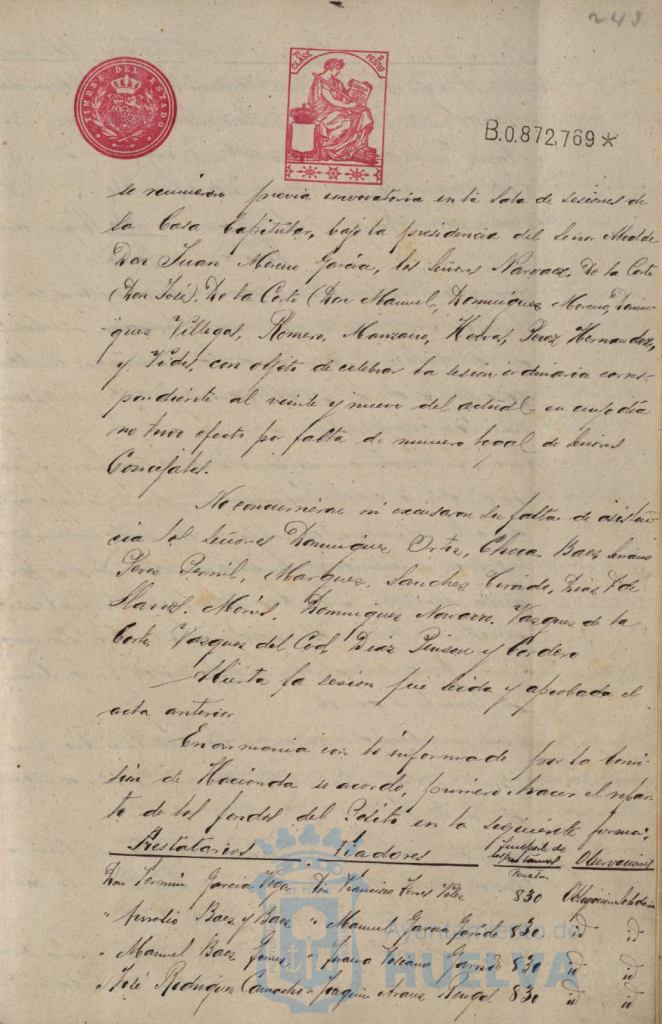 243
TIMBRE DEL ESTADO
7ª CLASE 2 PESTAS
B.0.872,769*
se reunieron previa convocatoria en la Sala de sesiones de
la Casa Capitular, bajo la presidencia del Señor Alcalde
Don Juan Moreno García, los Señores Narvaez, De la Corte
(Don José), De la Corte (Don Manuel, Dominguez Moreno, Domin-
guez Villegas, Romero, Manzano, Perez Hernandez,
y Vides, con objeto de celebrar la sesión ordinaria corres-
pondiente al veinte y nueve del actual en cuyo día
no tuvo efecto por falta de numero legal de Señores
Concejales.
No concurrieron ni excusaron su falta de asisten-
cia los Señores Dominguez Ortiz, Checa, Baez
Perez Pernil, Marquez, Sanchez Tirado, Diaz
Morís, Dominguez Navarro, Vazquez de la
Corte, Vazquez del Cid, Diaz Pinzon y Cordero
Abierta la sesion fue leida y aprobada el
acta anterior
En armonia con lo informado por la Comi-
sión de Hacienda se acordo, primero: hacer el repar-
to de los fondos del Pósito en la siguiente forma:
Prestatarios Fiadores Importe de los prestamos Pesetas Observaciones
Don Fermín García Don Francisco 830 Obligacion Solidaria
" Baez y Baez " Manuel García Garrido 830 id id
" Manuel Baez Gomez " Juana Garrido 830 id id
" José Rodriguez Camacho " Joaquin Rengel 830 id id
Ayuntamiento de
HUELVA